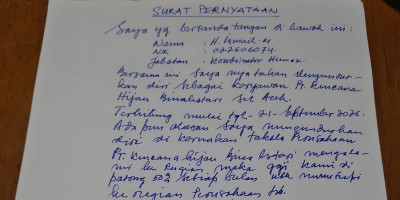 SURAT PERNYATAAN
Saya yg bertanda tangan di bawah ini :
Nama : H. Ismail. M
NIK : 022606074.
Jabatan : Koordinator Humas.
Bersama ini saya nyatakan mengundur-
kan diri sebagai karyawan Pt. Kencana
Hijau Binalestari Sit Aceh.
Terhitung mulai tgl - 21 - September 2026.
Ada pun alasan saya mengundurkan
diri di karenakan Perusahaan
Pt. Kencana hijau Bina lestari mengala-
mi ke Rugian maka gaji kami di
potong 50% setiap bulan utk menutupi
ke rugian Perusahaan tsb.